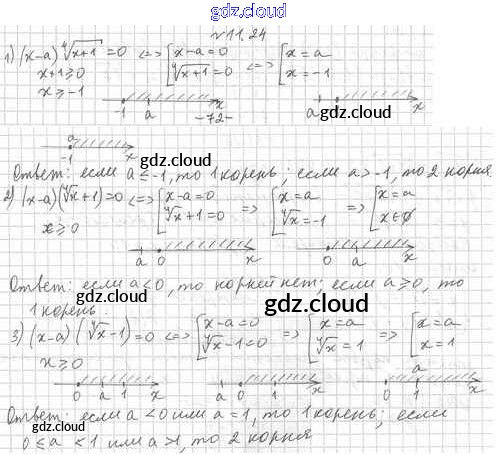 gdz.cloud
√11.24
1) (x-a) ⁴√(x+1) = 0 <=> [x-a=0 ⁴√(x+1)=0 <=> [x=a x=-1
x+1≥0
x≥-1
-1 a x a x
-72-
a gdz.cloud gdz.cloud
-1
Ответ: если a≤-1, то 1 корень; если a>-1, то 2 корня
2) (x-a)(⁴√x+1)=0 <=> [x-a=0 ⁴√x+1=0 => [x=a ⁴√x=-1 => [x=a x∈∅
gdz.cloud gdz.cloud
x≥0
a 0 x 0 a x
Ответ: если a<0, то корней нет; если a≥0, то
1 корень.
gdz.cloud gdz.cloud
3) (x-a)(⁴√x-1)=0 <=> [x-a=0 ⁴√x-1=0 => [x=a ⁴√x=1 => [x=a x=1
x≥0
0 a 1 x a 0 1 x 0 a 1 x
gdz.cloud gdz.cloud
Ответ: если a<0 или a=1, то 1 корень; если
0≤a<1 или a>1, то 2 корня